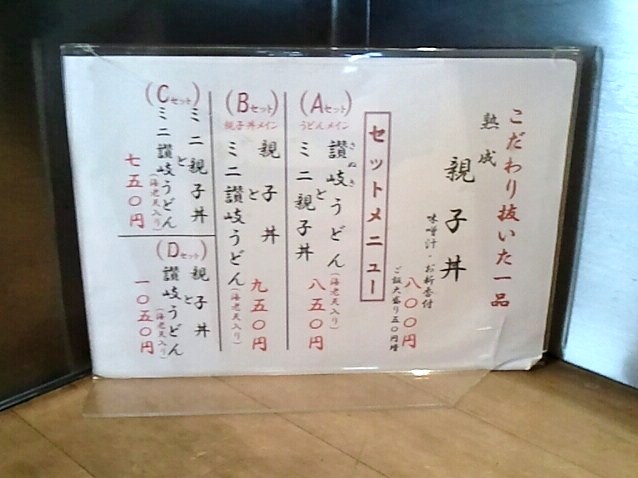 こだわり抜いた一品
熟成
親子丼
味噌汁・お新香付
八〇〇円
ご飯大盛り五〇円増
セットメニュー
(Aセット)
うどんメイン
さぬき
讃岐うどん(海老天入り)
と
ミニ親子丼
八五〇円
(Bセット)
親子丼メイン
親子丼
と
ミニ讃岐うどん(海老天入り)
九五〇円
(Cセット)
ミニ親子丼
と
ミニ讃岐うどん(海老天入り)
七五〇円
(Dセット)
親子丼
と
讃岐うどん(海老天入り)
一〇五〇円